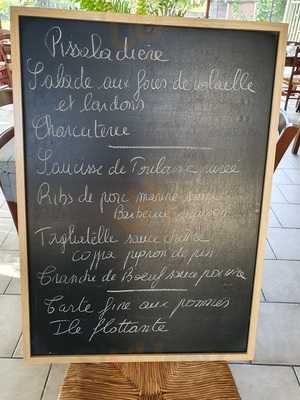 Pissaladière
Salade aux foies de volaille
et lardons
Charcuterie
Saucisse de Toulouse purée
Ribs de porc mariné sauce
Barbecue maison
Tagliatelle sauce
coppa pignon de pin
Tranche de Boeuf sauce poivre
Tarte fine aux pommes
Ile flottante